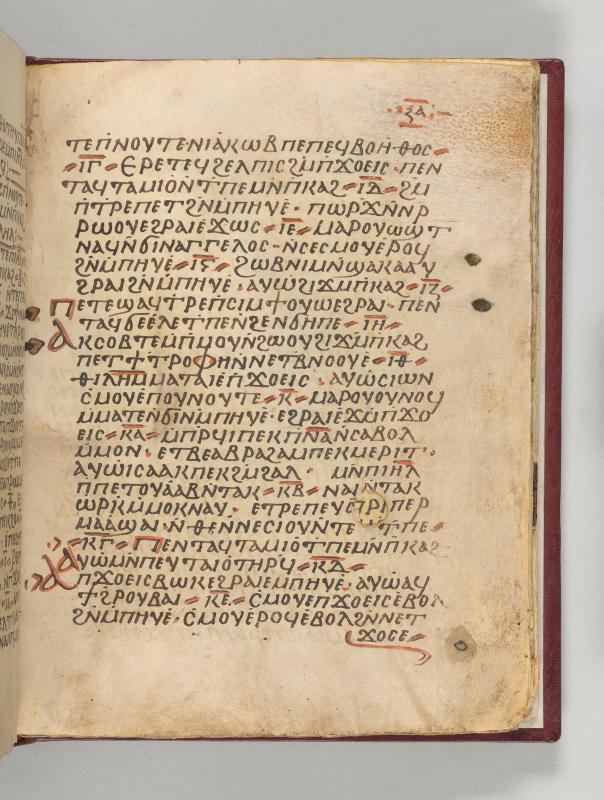 ⲝⲁ
ⲧⲉⲡⲛⲟⲩⲧⲉⲛⲓⲁⲕⲱⲃⲡⲉⲡⲉϥⲃⲟⲏⲑⲟⲥ
ⲓⲅ ⲉⲣⲉⲧⲉϥϩⲉⲗⲡⲓⲥϩⲙⲡϫⲟⲉⲓⲥ · ⲡⲉⲛ
ⲧⲁϥⲧⲁⲙⲓⲟⲛⲧⲡⲉⲙⲛⲡⲕⲁϩ ⲓⲇ ϩⲙ
ⲡⲧⲣⲉⲡⲉⲧϩⲛⲙⲡⲏⲩⲉ · ⲡⲱⲣϫⲛⲛⲣ
ⲣⲱⲟⲩⲉϩⲣⲁⲓⲉϫⲱⲥ ⲓⲉ ⲙⲁⲣⲟⲩⲱϣⲧ
ⲛⲁϥⲛϭⲓⲛⲁⲅⲅⲉⲗⲟⲥ · ⲛⲥⲉⲥⲙⲟⲩⲉⲣⲟϥ
ϩⲛⲙⲡⲏⲩⲉ ⲓⲋ ϩⲱⲃⲛⲓⲙⲛϣⲁⲕⲁⲁⲩ
ϩⲣⲁⲓϩⲛⲙⲡⲏⲩⲉ · ⲁⲩⲱϩⲓϫⲙⲡⲕⲁϩ ⲓⲍ
ⲡⲉⲧⲉϣⲁϥⲧⲣⲉⲡⲥⲓⲙϯⲟⲩⲱⲉϩⲣⲁⲓ · ⲡⲉⲛ
ⲧⲁϥϭⲉⲉⲗⲉⲧⲡⲉⲛϩⲉⲛϭⲏⲡⲉ ⲓⲏ
ⲁⲕⲥⲟⲃⲧⲉⲙⲡⲙⲟⲩⲛϩⲱⲟⲩϩⲓϫⲙⲡⲕⲁϩ
ⲡⲉⲧϯⲧⲣⲟⲫⲏⲛⲛⲉⲧⲃⲛⲟⲟⲩⲉ ⲓⲑ
ⲑⲓⲗⲏⲙⲙⲁⲧⲁⲓⲉⲡϫⲟⲉⲓⲥ · ⲁⲩⲱⲥⲓⲱⲛ
ⲥⲙⲟⲩⲉⲡⲟⲩⲛⲟⲩⲧⲉ ⲕ ⲙⲁⲣⲟⲩⲟⲩⲛⲟϥ
ⲙⲙⲁⲧⲉⲛϭⲓⲛⲙⲡⲏⲩⲉ · ⲉϩⲣⲁⲓⲉϫⲙⲡϫⲟ
ⲉⲓⲥ ⲕⲁ ⲙⲡⲣϥⲓⲡⲉⲕⲡⲛⲁⲛⲥⲁⲃⲟⲗ
ⲙⲙⲟⲛ · ⲉⲧⲃⲉⲁⲃⲣⲁϩⲁⲙⲡⲉⲕⲙⲉⲣⲓⲧ ·
ⲁⲩⲱⲓⲥⲁⲁⲕⲡⲉⲕϩⲙϩⲁⲗ · ⲙⲛⲡⲓⲏⲗ
ⲡⲡⲉⲧⲟⲩⲁⲁⲃⲛⲧⲁⲕ ⲕⲃ ⲛⲁⲓⲛⲧⲁⲕ
ⲱⲣⲕⲙⲙⲟⲕⲛⲁⲩ · ⲉⲧⲣⲉⲡⲉⲩⲥⲡⲉⲣ
ⲙⲁⲁϣⲁⲓ · ⲛⲑⲉⲛⲛⲉⲥⲓⲟⲩⲛⲧⲉ ⲧⲡⲉ
ⲕⲅ ⲡⲉⲛⲧⲁϥⲧⲁⲙⲓⲟⲧⲡⲉⲙⲛⲡⲕⲁϩ
ⲁⲩⲱⲙⲛⲡⲉⲩⲧⲁⲓⲟⲧⲏⲣϥ ⲕⲇ
ⲁⲡϫⲟⲉⲓⲥⲃⲱⲕⲉϩⲣⲁⲓⲉⲙⲡⲏⲩⲉ · ⲁⲩⲱⲁϥ
ϯϩⲣⲟⲩⲃⲁⲓ ⲕⲉ ⲥⲙⲟⲩⲉⲡϫⲟⲉⲓⲥⲉⲃⲟⲗ
ϩⲛⲙⲡⲏⲩⲉ · ⲥⲙⲟⲩⲉⲣⲟϥⲉⲃⲟⲗϩⲛⲛⲉⲧ
ϫⲟⲥⲉ